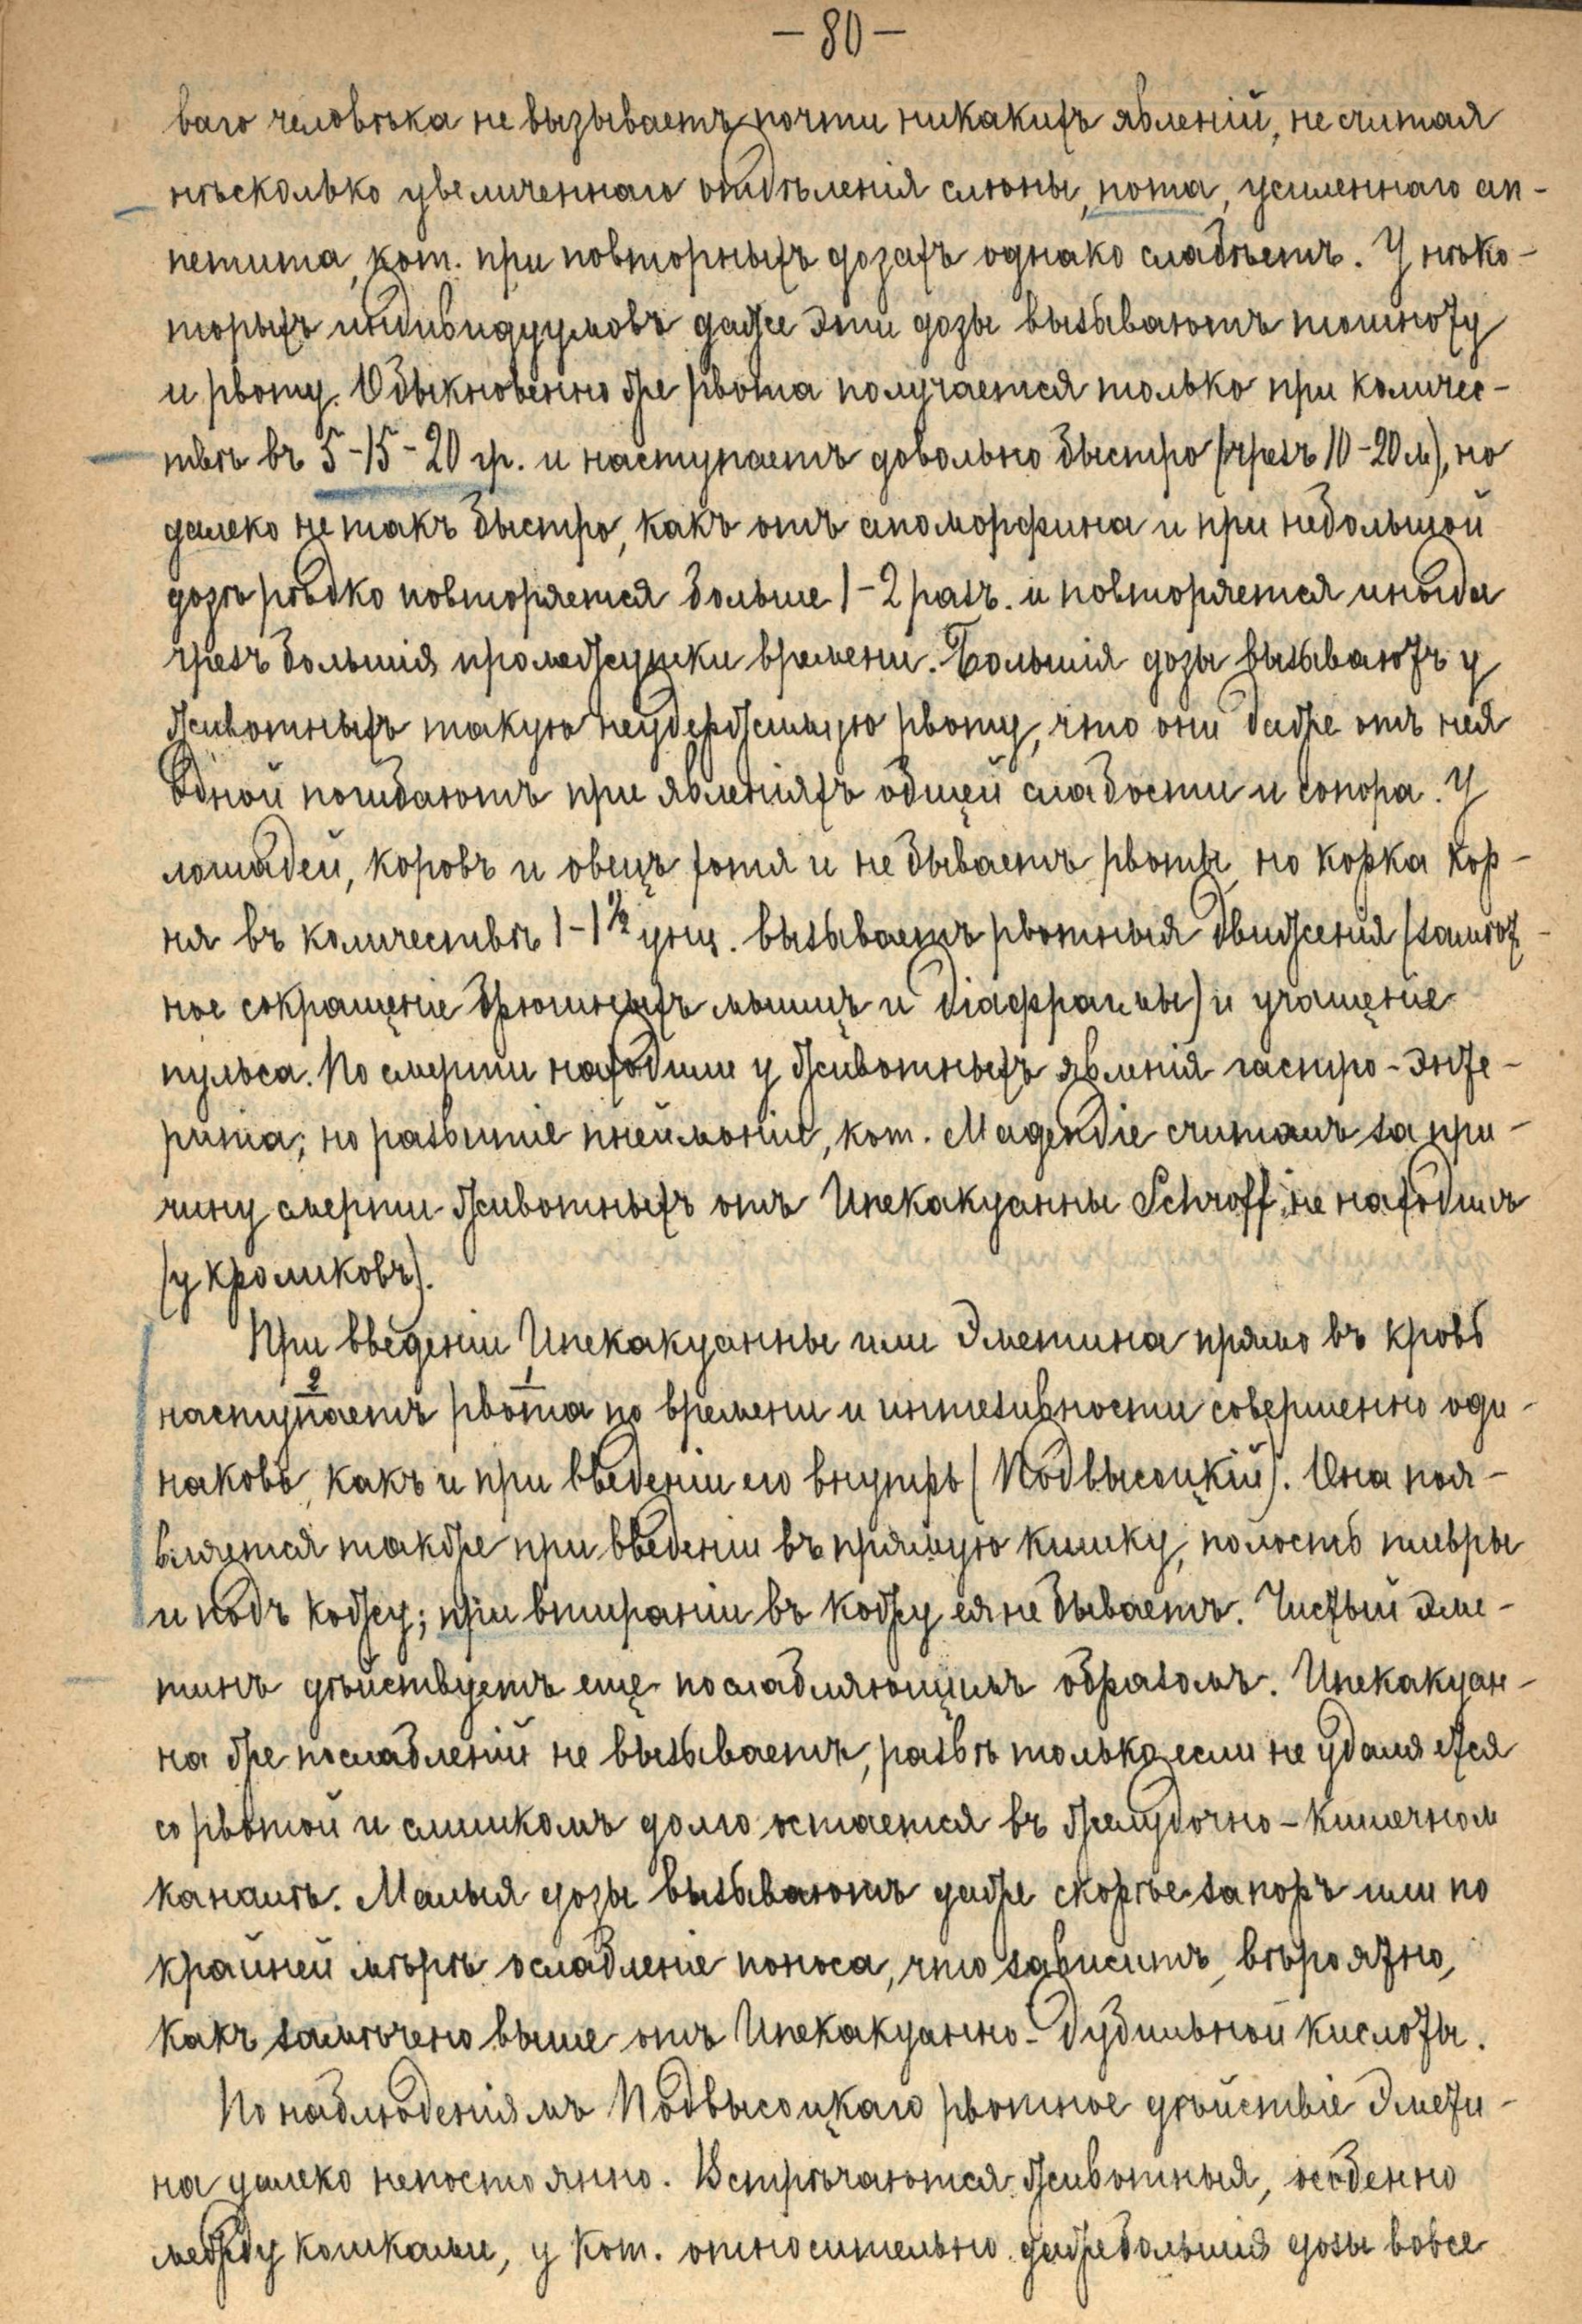 — 80 —
ваго человѣка не вызываетъ почти никакихъ явленій, не считая
нѣсколько увеличеннаго отдѣленія слюны, пота, усиленнаго ап-
петита, кот. при повторныхъ дозахъ однако слабѣетъ. У нѣко-
торыхъ индивидуумовъ даже эти дозы вызываютъ тошноту
и рвоту. Обыкновенно же рвота получается только при количес-
твѣ въ 5-15-20 гр. и наступаетъ довольно быстро (чрезъ 10-20 м), но
далеко не такъ быстро, какъ отъ апоморфина и при небольшой
дозѣ рѣдко повторяется больше 1-2 разъ. и повторяется иногда
чрезъ большія промежутки времени. Большія дозы вызываютъ у
животныхъ такую неудержимую рвоту, что они даже отъ нея
одной погибаютъ при явленіяхъ общей слабости и сопора. У
лошадей, коровъ и овецъ хотя и не бываетъ рвоты, но корка кор-
ня въ количествѣ 1-1 1/2 унц. вызываетъ рвотныя движенія (
ное сокращеніе брюшныхъ мышцъ и діафрагмы) и учащеніе
пульса. По смерти находили у животныхъ явленія гастро-энте-
рита; но развитіе пнеймоніи, кот. Мадендіе считалъ за при-
чину смерти животныхъ отъ Ипекакуанны Schroff не находилъ
(у кроликовъ).
При введеніи Ипекакуанны или Эметина прямо въ кровь
2 1
наступаетъ рвота по времени и интезивности совершенно оди-
наково, какъ и при введеніи его внутрь (Подвысоцкій). Она поя-
вляется также при введеніи въ прямую кишку, полость плевры
и подъ кожу; при втираніи въ кожу ея не бываетъ. Чистый эме-
тинъ дѣйствуетъ еще послабляющимъ образомъ. Ипекакуан-
на же послабленій не вызываетъ, развѣ только если не удаляется
со рвотой и слишкомъ долго остается въ желудочно-кишечном
каналѣ. Малыя дозы вызываютъ даже скорѣе запоръ или по
крайней мѣрѣ ослабленіе поноса, что зависитъ, вѣроятно,
какъ замѣчено выше отъ Ипекакуанно-дубильной кислоты.
По наблюденіямъ Подвысоцкаго рвотное дѣйствіе Эмети-
на далеко непостоянно. Встрѣчаются животныя, особенно
между кошками, у кот. относительно даже большія дозы вовсе